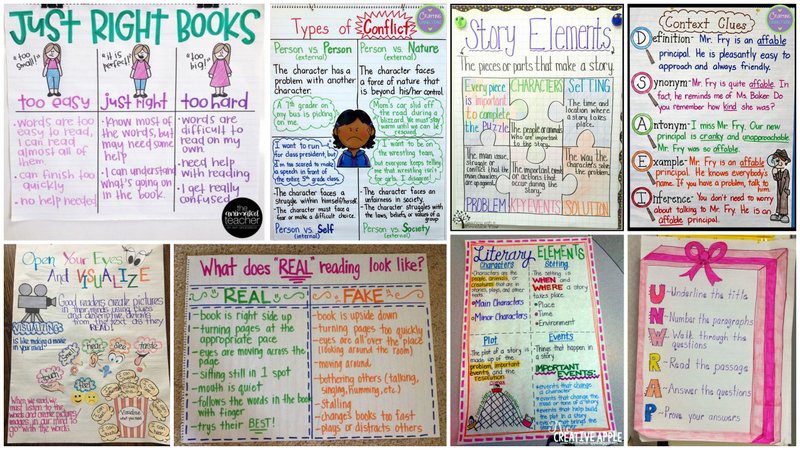 JUST RIGHT BOOKS
"too small!"
"it is perfect!"
"too big!"
too easy
just right
too hard
-Words are too
easy to read,
I can read
almost all of
them.
-can finish too
quickly
-no help needed
-Know most of
the words, but
may need some
help
-I can understand
what's going on in
the book.
-words are
difficult to
read on my
own.
-need help
with reading
-I get really
confused.
the
animated
teacher
Types of Conflict
Person vs. Person
(external)
The character has a
problem with another
character.
A 7th grader on
my bus is picking
on me.
I want to run
for class president, but
I'm too scared to make
a speech in front of
the entire 5th grade class.
The character faces a
struggle within himself/herself.
The character must face a
fear or make a difficult choice.
Person vs. Self
(internal)
Person vs. Nature
(external)
The character faces
a force of nature that
is beyond his/her control.
Mom's car slid off
the road during a
blizzard. We must stay
warm until we can be
rescued.
I want to be on
the wrestling team,
but everyone keeps telling
me that wrestling isn't
for girls.
The character faces an
unfairness in society.
The character struggles with
the laws, beliefs, or values of a
group.
Person vs. Society
(external)
Story Elements
The pieces or parts that make a story.
Every piece
is important
to complete
the Puzzle.
CHARACTERS
The people or animals
who are important
to the story.
SETTING
The time and
location where
a story takes
place.
The main issue,
struggle or
conflict that the
main characters
PROBLEM
The important events
or actions that
occur during the
story.
KEY EVENTS
The way the
characters solve the
problem.
SOLUTION
Context Clues
Definition- Mr. Fry is an affable
principal. He is pleasantly easy to
approach and always friendly.
Synonym- Mr. Fry is quite affable. In
fact, he reminds me of Ms. Baker. Do
you remember how kind she was?
Antonym- I miss Mr. Fry. Our new
principal is cranky and unapproachable.
Mr. Fry was so affable.
Example- Mr. Fry is an affable
principal. He knows everybody's
name. If you have a problem, talk to
him.
Inference- You don't need to worry
about talking to Mr. Fry. He is an
affable principal.
Open Your Eyes
And VISUALIZE
Good readers create pictures
in their minds using clues
and descriptive details
from the text as they
READ!
VISUALIZING
is like making a movie
in your mind!
hear
see
taste
When we read, we
must listen to the
words and create pictures/
images in our mind to
go with the words.
Visualize
What does "REAL" reading look like?
REAL
-book is right side up
-turning pages at the
appropriate pace
-eyes are moving across the
page
-sitting still in 1 spot
-mouth is quiet
-follows the words in the book
with finger
-trys their BEST!
FAKE
-book is upside down
-turning pages too quickly
-eyes are all over the place
(looking around the room)
-moving around
-bothering others (talking,
singing, humming, etc.)
-Stalling
-changes books too fast
-plays or distracts others
Literary ELEMENTS
Characters
Characters are the
people, animals, or
creatures that are in
stories, plays, and other
•Main Characters
•Minor Characters
Setting
The setting is
WHEN and
WHERE a story
takes place.
•Place
•Time
•Environment
Plot
The plot of a story is
made up of the
problem, important
events, and the
resolution
Events
Things that happen in
a story.
IMPORTANT
EVENTS:
•events that change a
character
•events that change the
mood or tone of a story
•events that help build
the plot in a story
CREATIVE APPLE
U-Underline the title
N-Number the paragraphs
W-Walk through the
questions
R-Read the passage
A-Answer the questions
P-Prove your answers